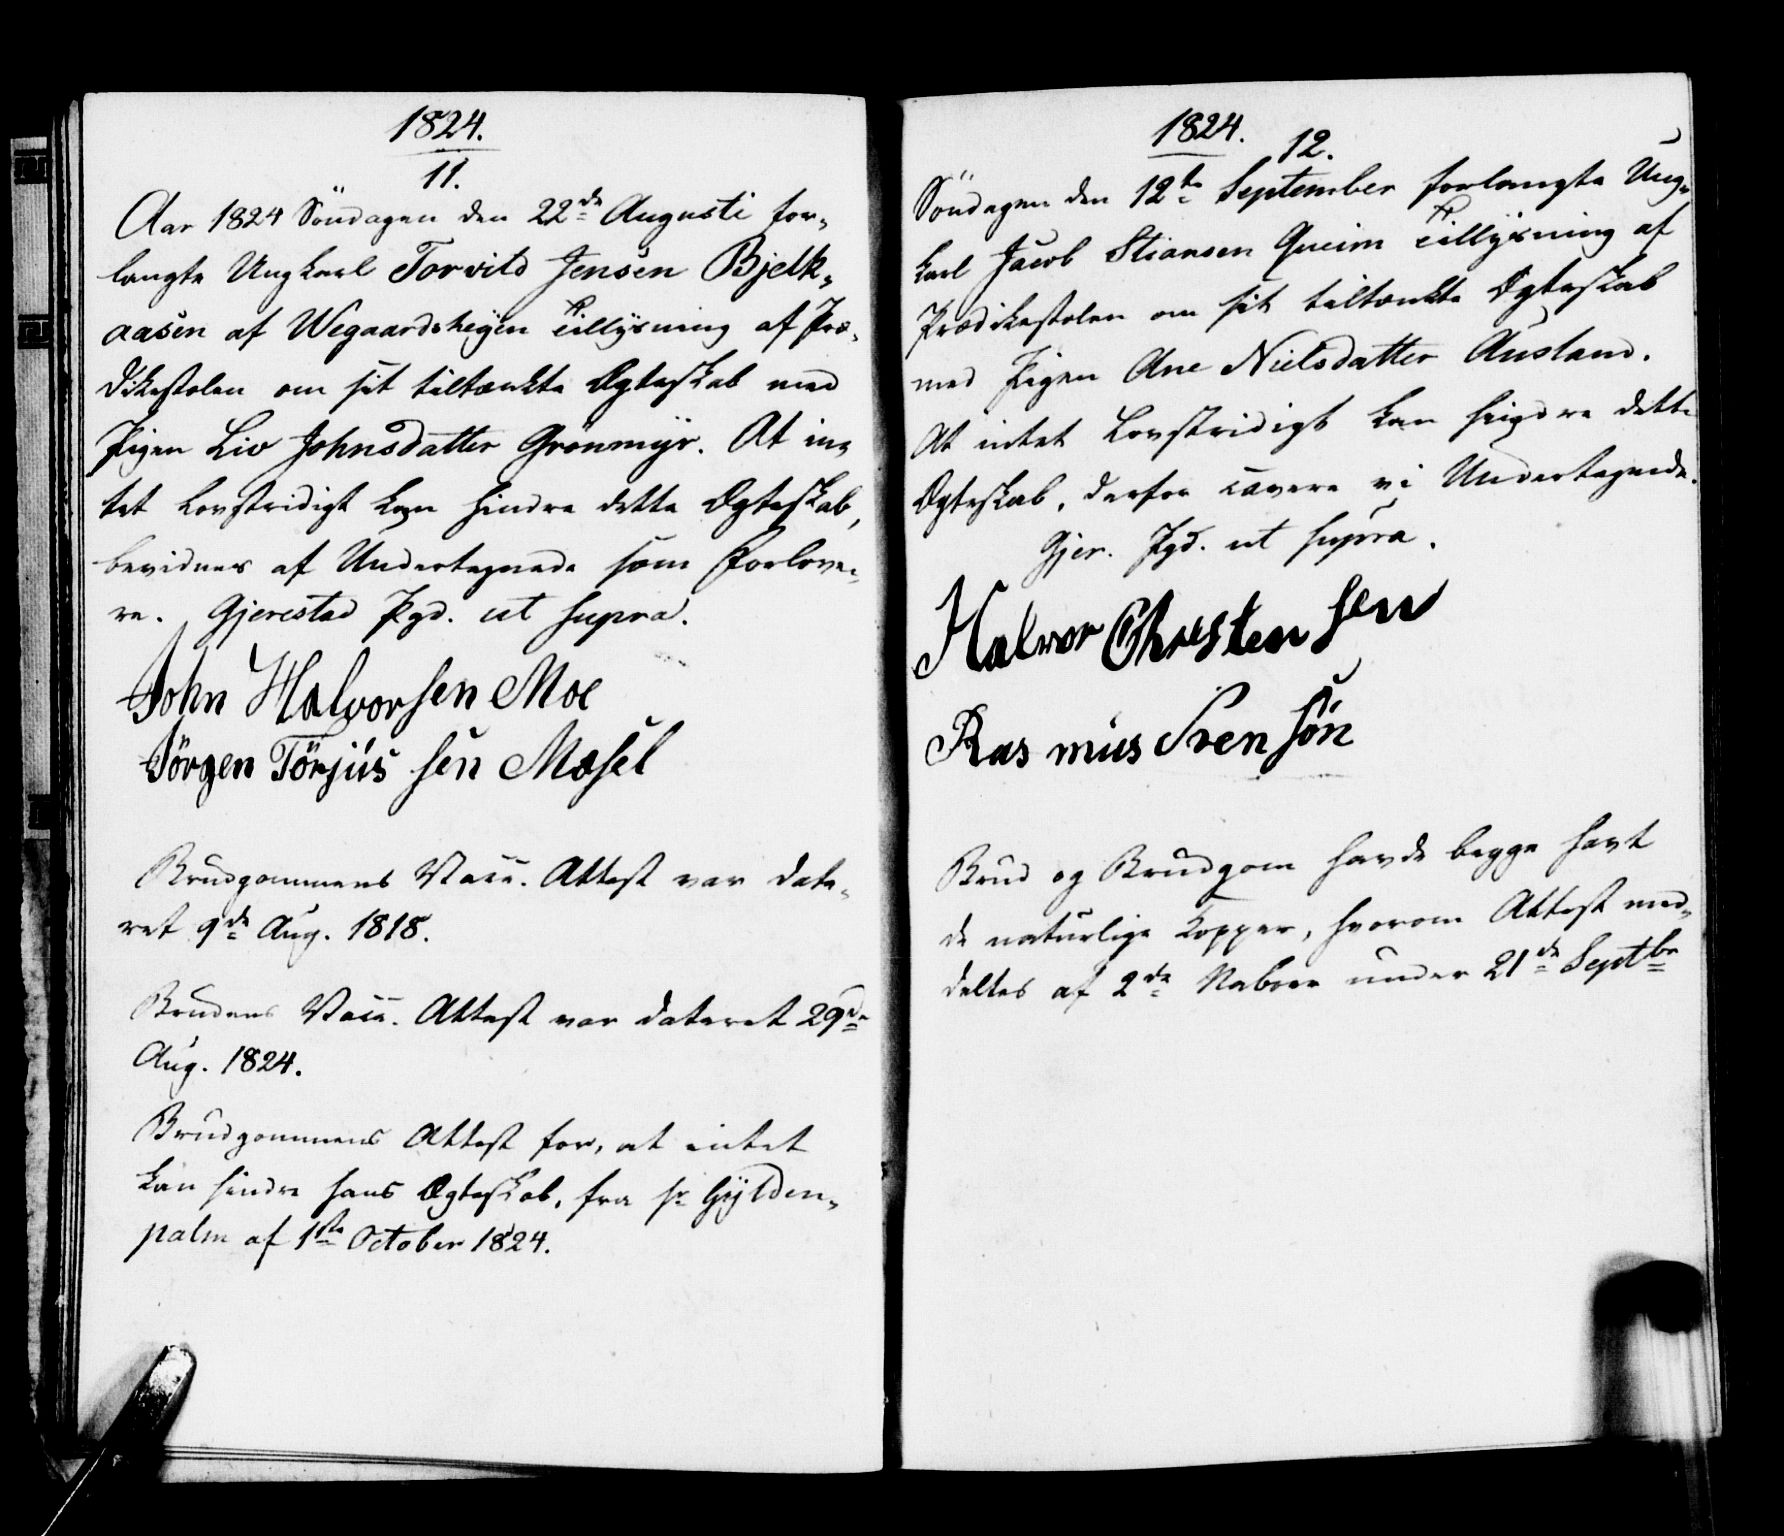 1824.
11.
Aar 1824 Söndagen den 22de Augusti for„
langte Ungkarl Torvild Jensen Bjelk„
aasen af Wegaardsheyen Tillysning af Præ„
dikestolen om sit tiltænkte Ægteskab med
Pigen Liv Johnsdatter Grönmyr. At in„
tet Lovstridigt kan hindre dette Ægteskab,
bevidnes af Undertegnede som Forlove„
re. Gjerestad Pgd. ut supra.
John Halvorsen Moe
Jörgen Törjus sen Mæsel
Brudgommens Vacc. Attest var date„
ret 9de Aug. 1818.
Brudens Vacc. Attest var dateret 29de
Aug. 1824.
Brudgommens Attest for, at intet
kan hindre hans Ægteskab, fra Hr Gylden„
palm af 1ste October 1824.
1824.
12.
Söndagen den 12te September forlangte Ung„
karl Jacob Stiansen Qveim Tillysning af
Prædikestolen om sit tiltænkte Ægteskab
med Pigen Ane Nielsdatter Ausland.
At intet Lovstridigt kan hindre dette
Ægteskab, derfor cavere vi Undertegnede.
Gjer. Pgd. ut supra.
Halvor Christen sen
Ras mus Sven sön
Brud og Brudgom havde begge havt
de naturlige Kopper, hvorom Attest med„
deltes af 2de Naboer under 21de Septbr